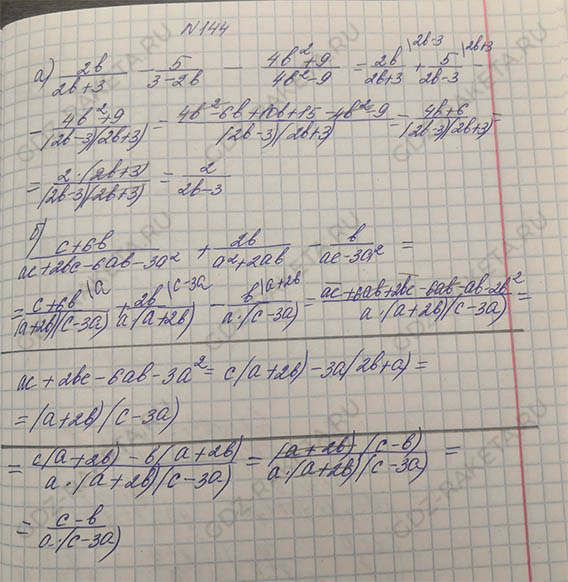 №144
а) 2b/(2b+3) - 5/(3-2b) - (4b²+9)/(4b²-9) = 2b/(2b+3) |2b-3 + 5/(2b-3) |2b+3 -
- (4b²+9)/((2b-3)(2b+3)) = (4b²-6b+10b+15-4b²-9)/((2b-3)(2b+3)) = (4b+6)/((2b-3)(2b+3)) =
= 2·(2b+3)/((2b-3)(2b+3)) = 2/(2b-3)
б) (c+6b)/(ac+2bc-6ab-3a²) + 2b/(a²+2ab) - b/(ac-3a²) =
= (c+6b)/((a+2b)(c-3a)) |a + 2b/(a(a+2b)) |c-3a - b/(a·(c-3a)) |a+2b = (ac+6ab+2bc-6ab-ab-2b²)/(a·(a+2b)(c-3a)) =
ac+2bc-6ab-3a² = c(a+2b)-3a(2b+a) =
= (a+2b)(c-3a)
= (c(a+2b)-b(a+2b))/(a·(a+2b)(c-3a)) = (a+2b)(c-b)/(a·(a+2b)(c-3a)) =
= (c-b)/(a·(c-3a))
GDZ-RAKETA.RU